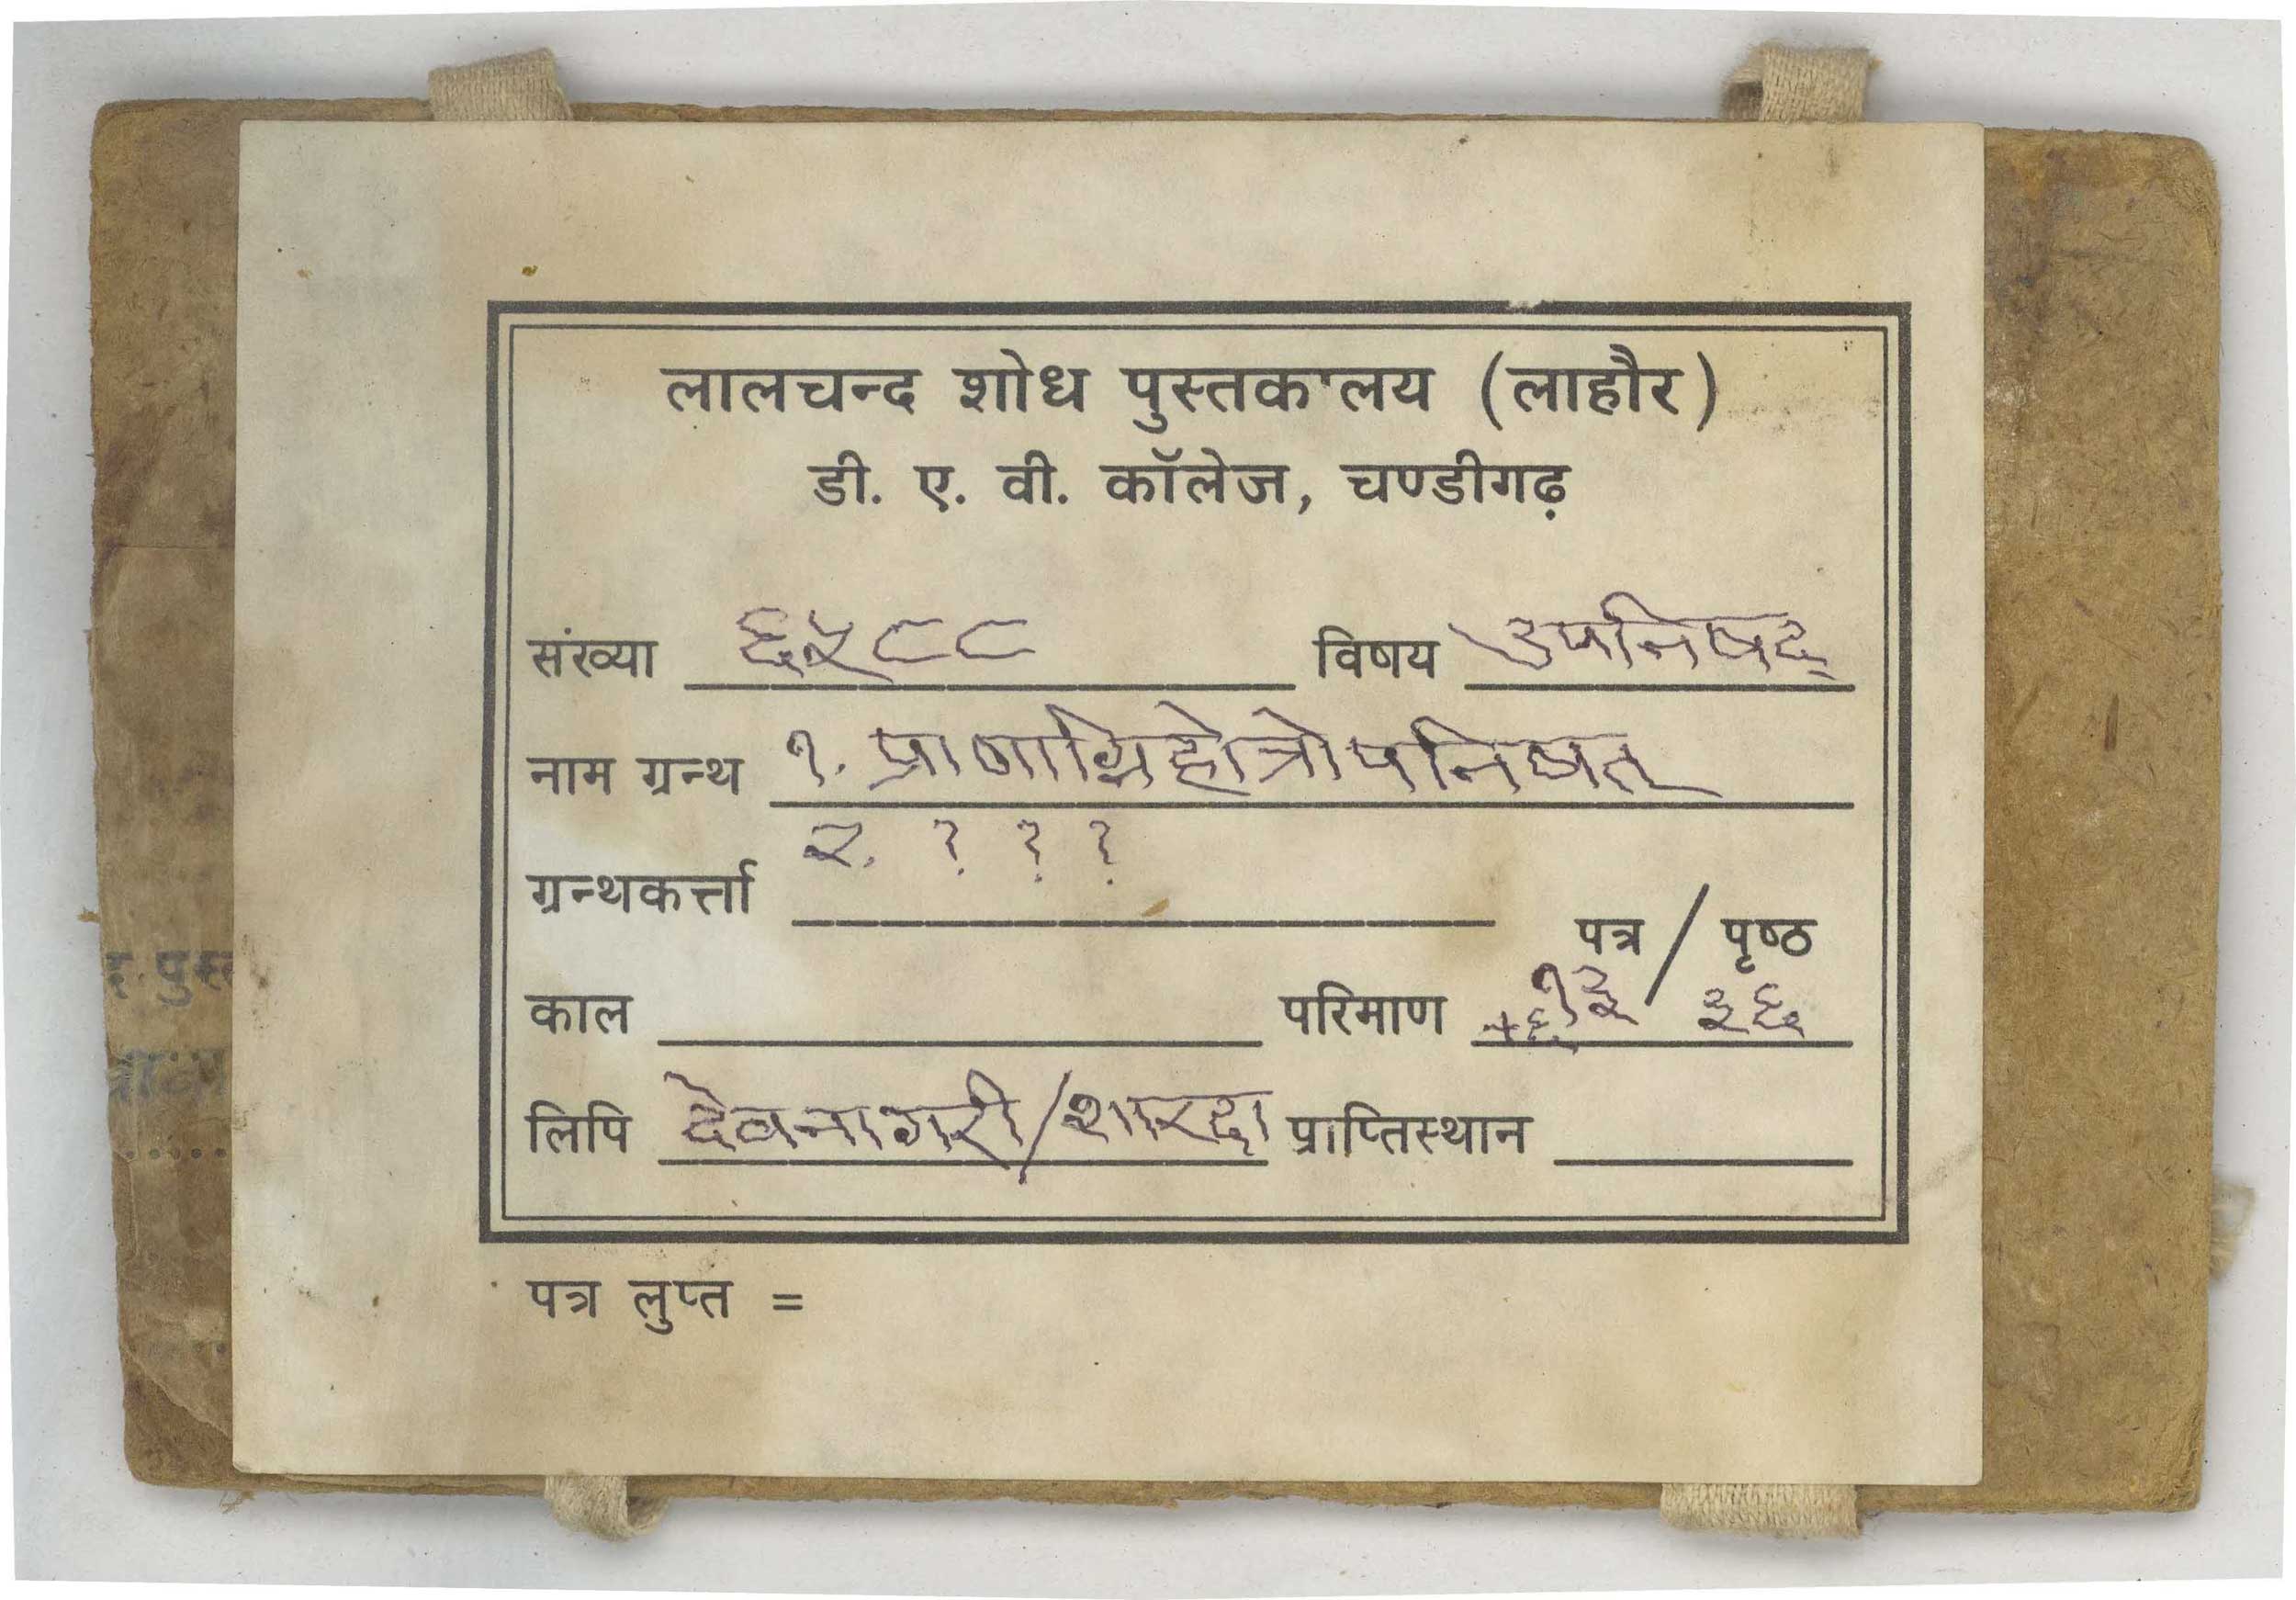 लालचन्द शोध पुस्तकालय (लाहौर)
डी. ए. वी. कॉलेज, चण्डीगढ़
संख्या ६५८८ विषय उपनिषद्
नाम ग्रन्थ १. प्राणाग्निहोत्रोपनिषत्
२. ? ? ?
ग्रन्थकर्त्ता
पत्र / पृष्ठ
काल परिमाण +६ १३ / ३६
लिपि देवनागरी/शारदा प्राप्तिस्थान
पत्र लुप्त =